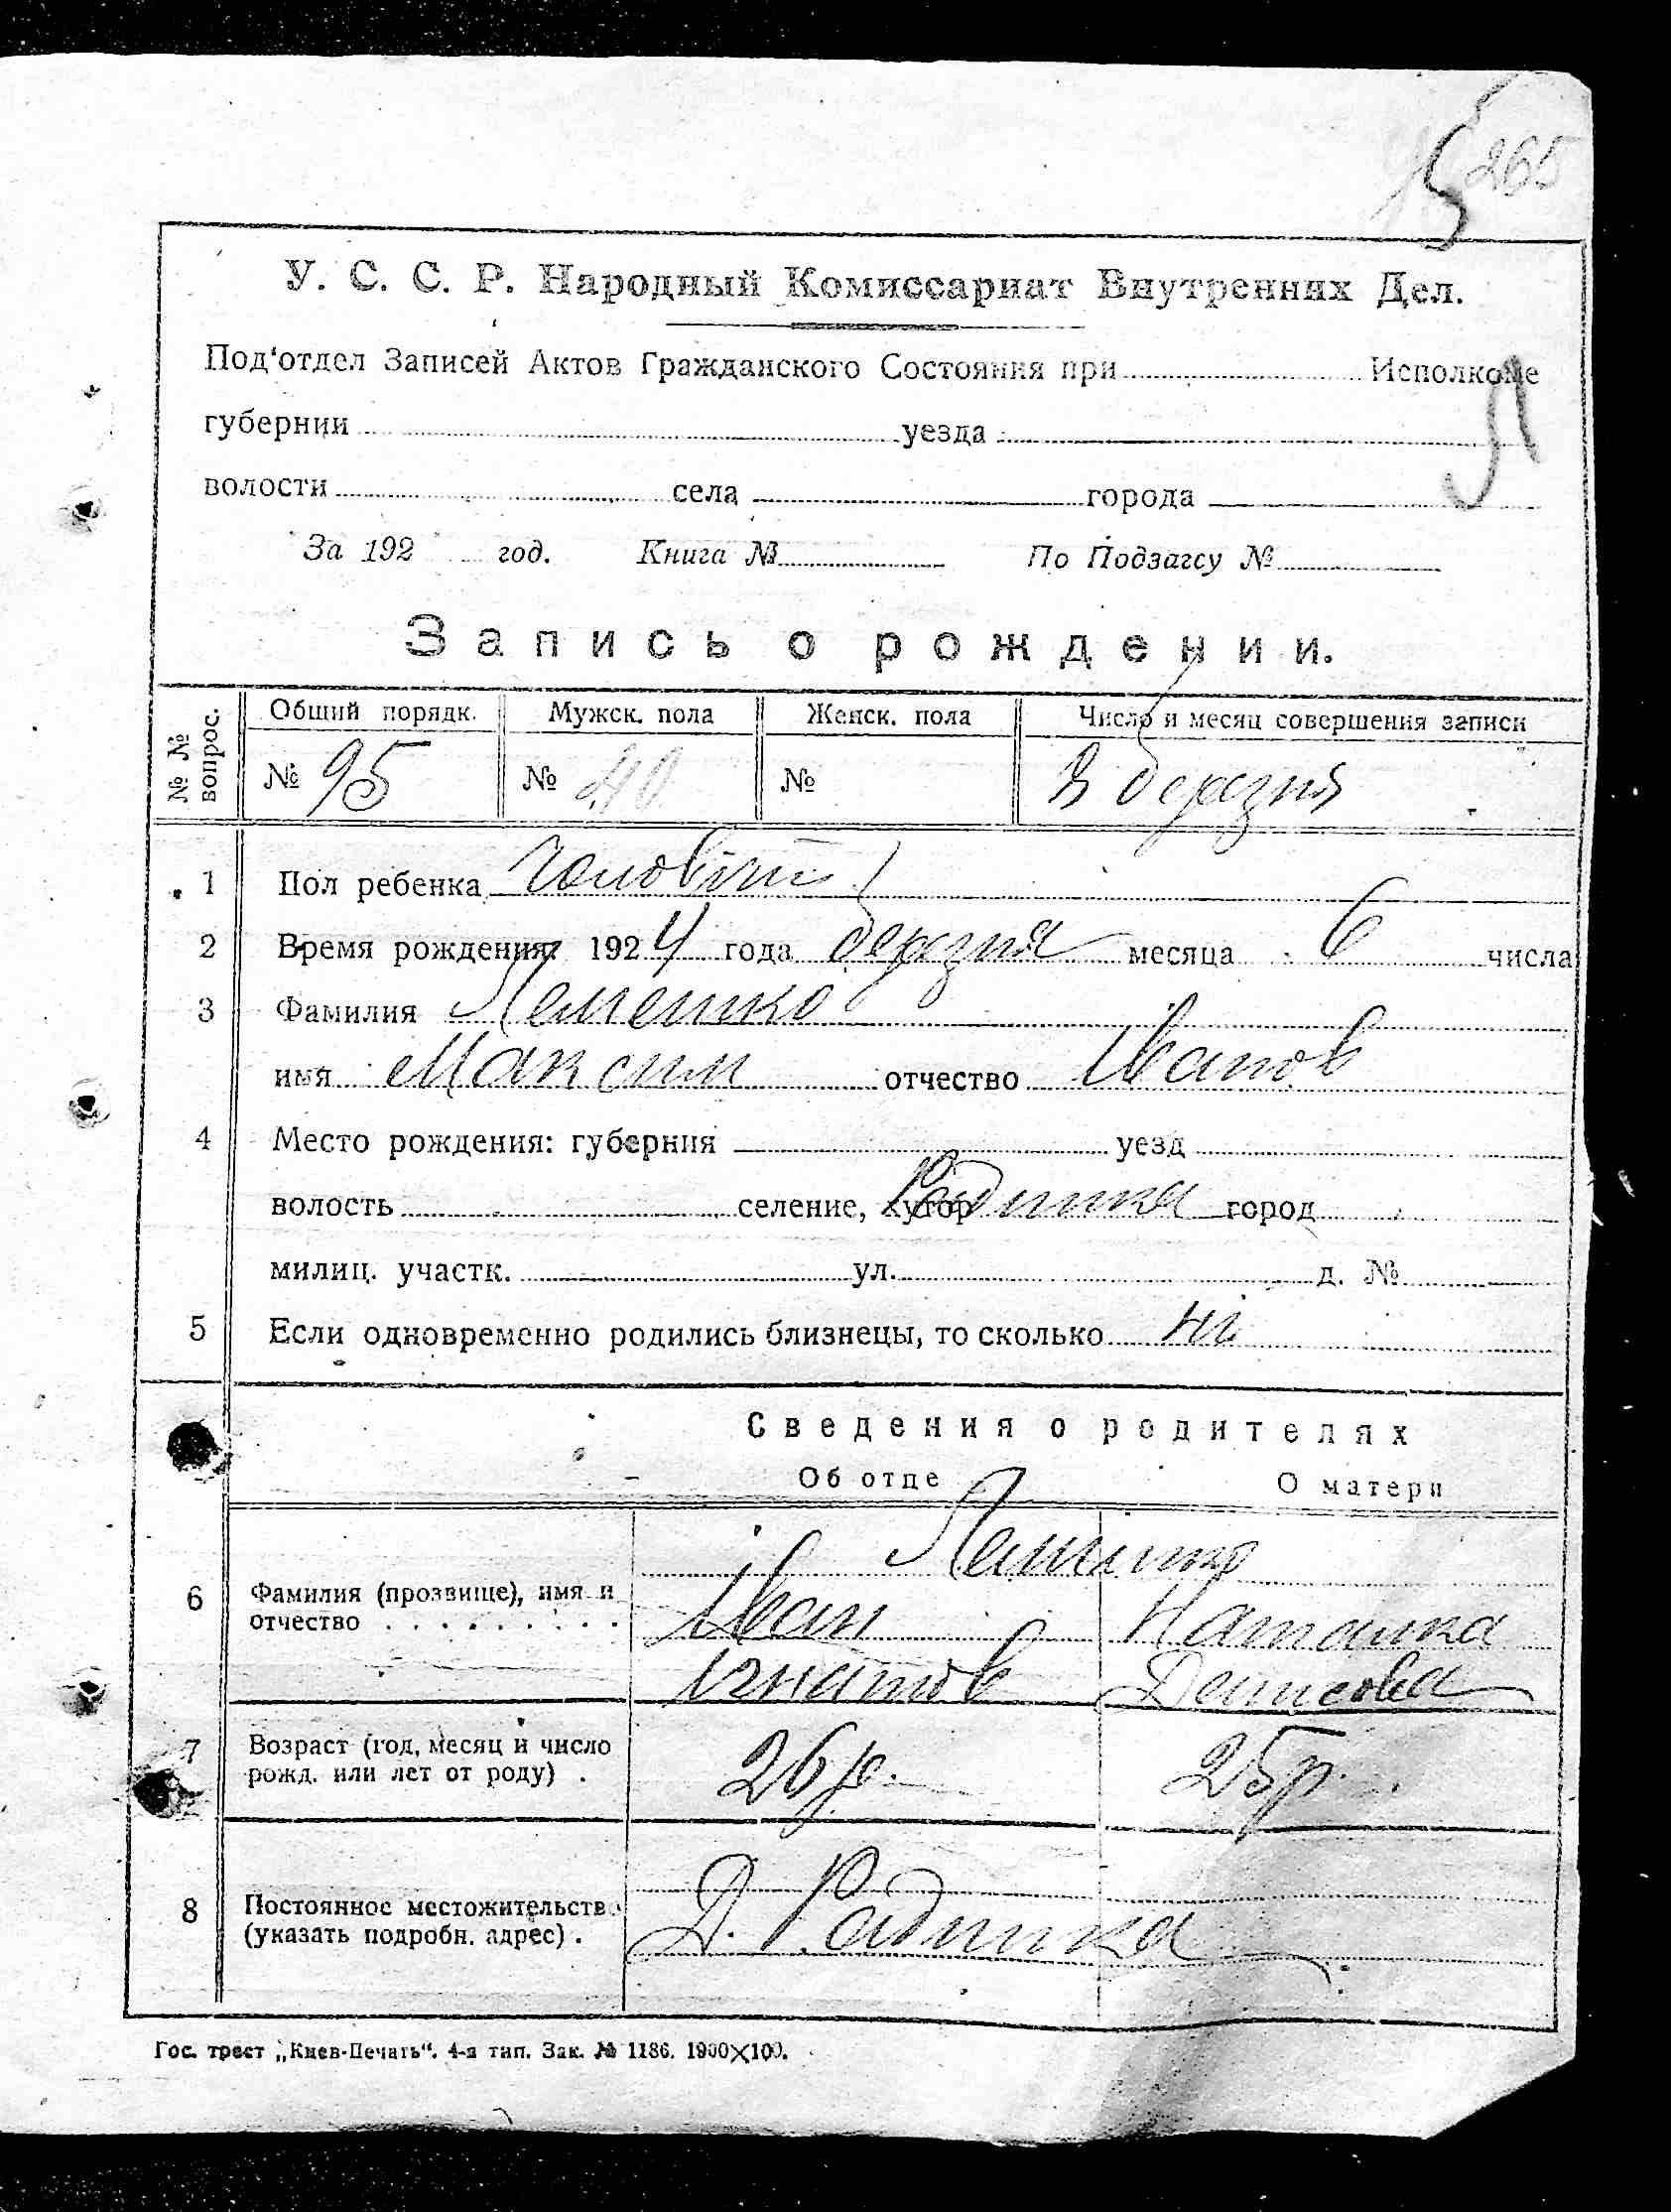 265
У. С. С. Р. Народный Комиссариат Внутренних Дел.
Под'отдел Записей Актов Гражданского Состояния при Исполкоме
губернии уезда
волости села города
За 192 год. Книга № По Подзагсу №
Запись о рождении.
№ № вопрос. Общий порядк. Мужск. пола Женск. пола Число и месяц совершения записи
№ 95 № 40 № березня
1 Пол ребенка
2 Время рождения: 1924 года березня месяца 6 числа
3 Фамилия
имя Максим отчество Іванов
4 Место рождения: губерния уезд
волость селение, хутор Радинка город
милиц. участк. ул. д. №
5 Если одновременно родились близнецы, то сколько ні
Сведения о родителях
Об отце О матери
6 Фамилия (прозвище), имя и
отчество
Іван Наталка
Ігнатов Денисова
7 Возраст (год, месяц и число
рожд. или лет от роду) . 26 р. 25 р.
8 Постоянное местожительство
(указать подробн. адрес) . Д. Радинка
Гос. трест „Киев-Печать“. 4-я тип. Зак. № 1186. 1900×100.